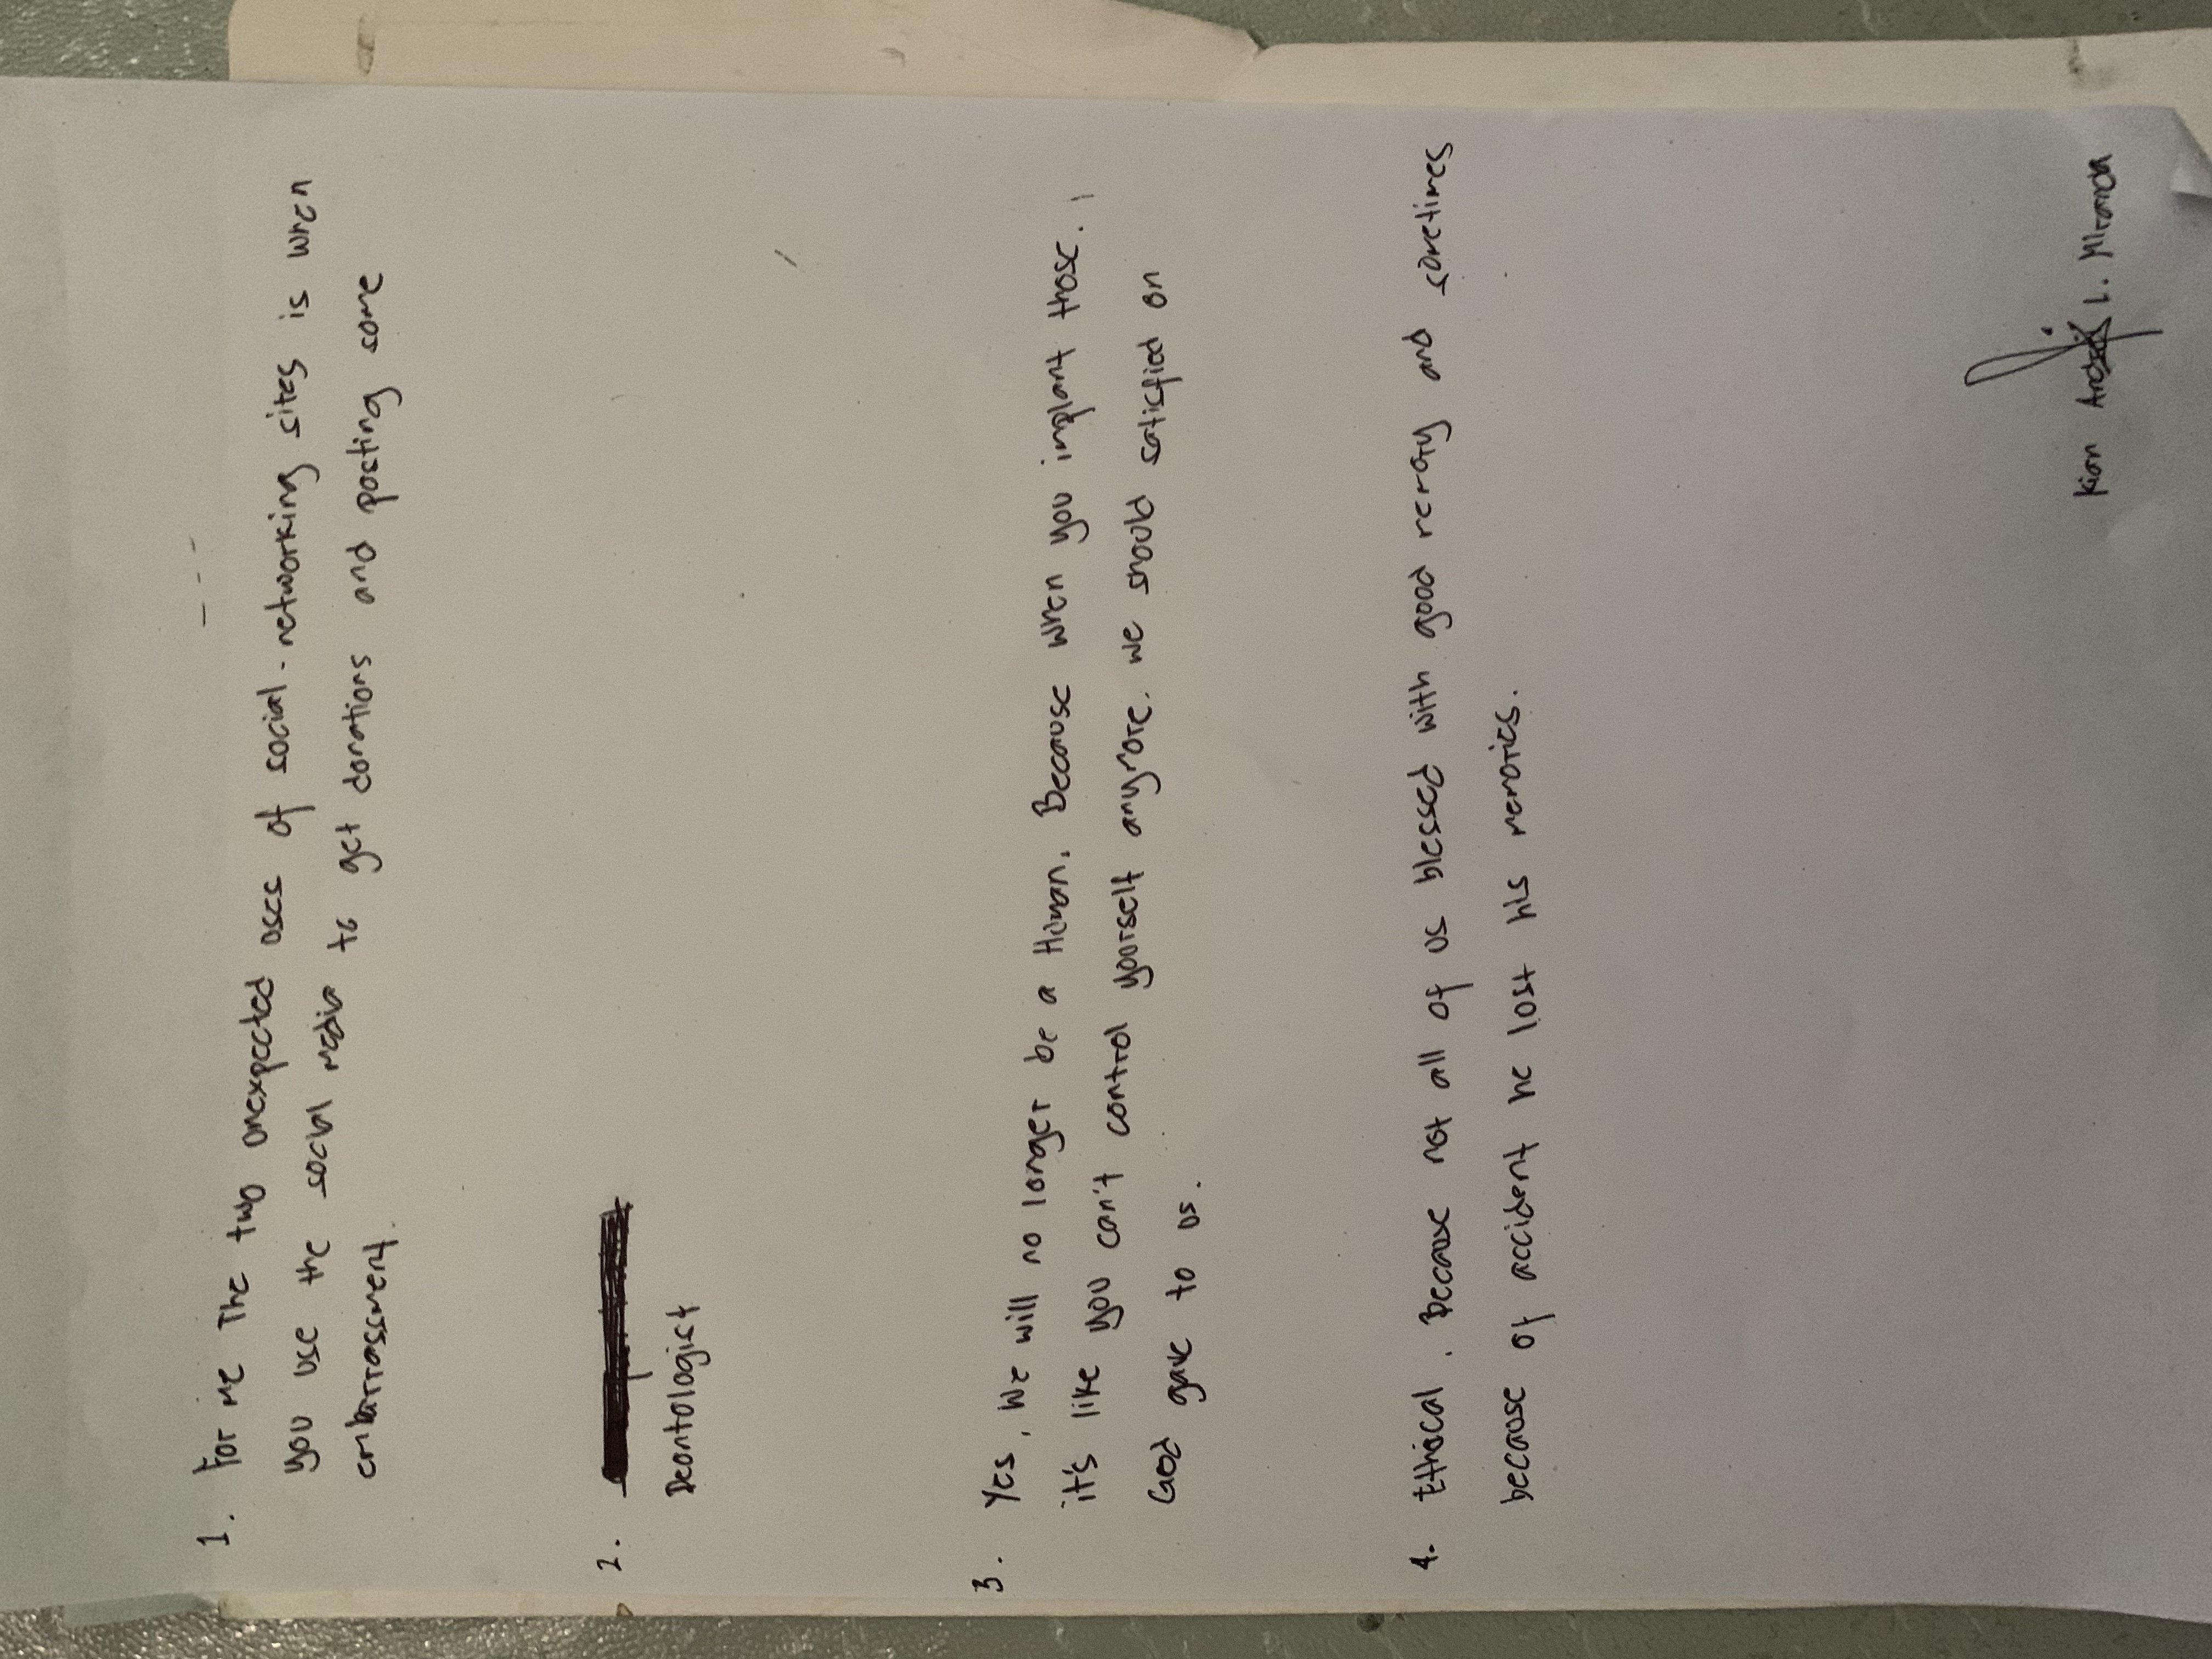 1. For me The two unexpected uses of social-networking sites is when
you use the social media to get donations and posting some
embarrassment.
2.
Deontologist
3. Yes, We will no longer be a Human. Because when you implant those.
it's like you can't control yourself anymore. We should satisfied on
God gave to us.
4. Ethical. Because not all of us blessed with good memory and sometimes
because of accident he lost his memories.
Kian Andrei L. Miranda